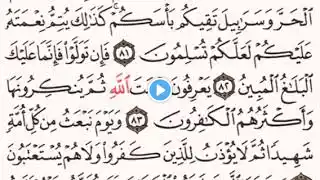 ٱلْحَرَّ وَسَرَٰبِيلَ تَقِيكُم بَأْسَكُمْ ۚ كَذَٰلِكَ يُتِمُّ نِعْمَتَهُۥ
عَلَيْكُمْ لَعَلَّكُمْ تُسْلِمُونَ ٨١ فَإِن تَوَلَّوْا۟ فَإِنَّمَا عَلَيْكَ
ٱلْبَلَٰغُ ٱلْمُبِينُ ٨٢ يَعْرِفُونَ ٱللَّهِ ثُمَّ يُنكِرُونَهَا
وَأَكْثَرُهُمُ ٱلْكَٰفِرُونَ ٨٣ وَيَوْمَ نَبْعَثُ مِن كُلِّ أُمَّةٍ
شَهِيدًا ثُمَّ لَا يُؤْذَنُ لِلَّذِينَ كَفَرُوا۟ وَلَا هُمْ يُسْتَعْتَبُونَ